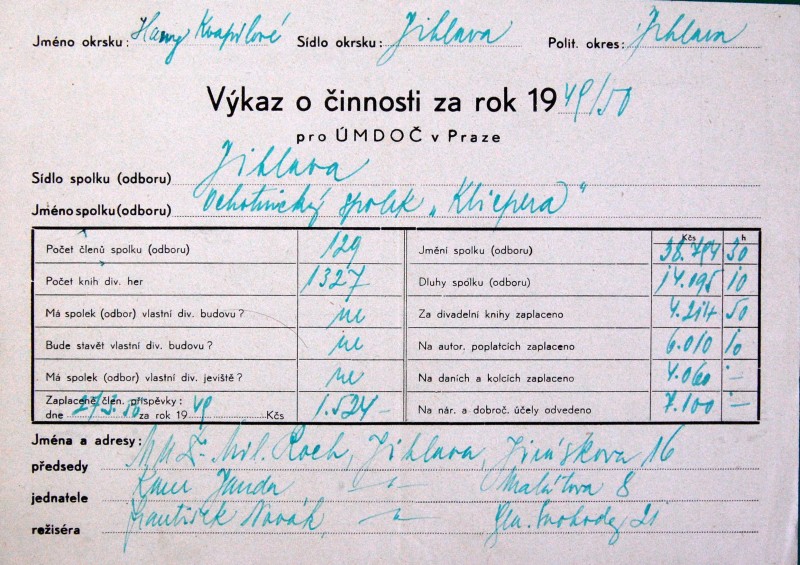 Jméno okrsku: Hany Kvapilové Sídlo okrsku: Jihlava Polit. okres: Jihlava
Výkaz o činnosti za rok 1949/50
pro ÚMDOČ v Praze
Sídlo spolku (odboru) Jihlava
Jméno spolku (odboru) Ochotnický spolek „Klicpera“
Kčs h
Počet členů spolku (odboru) 129 Jmění spolku (odboru) 38.794 30
Počet knih div. her 1327 Dluhy spolku (odboru) 14.095 10
Má spolek (odbor) vlastní div. budovu? ne Za divadelní knihy zaplaceno 4.214 50
Bude stavět vlastní div. budovu? ne Na autor. poplatcích zaplaceno 6.010 10
Má spolek (odbor) vlastní div. jeviště? ne Na daních a kolcích zaplaceno 4.060 —
Zaplacené člen. příspěvky:
dne 27.3.50 za rok 1949 Kčs 1.524 — Na nár. a dobroč. účely odvedeno 7.100 —
Jména a adresy:
předsedy Mil. Roch, Jihlava, Jiráskova 16
jednatele Janda —"— 8
režiséra František Novák, —"— Gen. Svobody 21